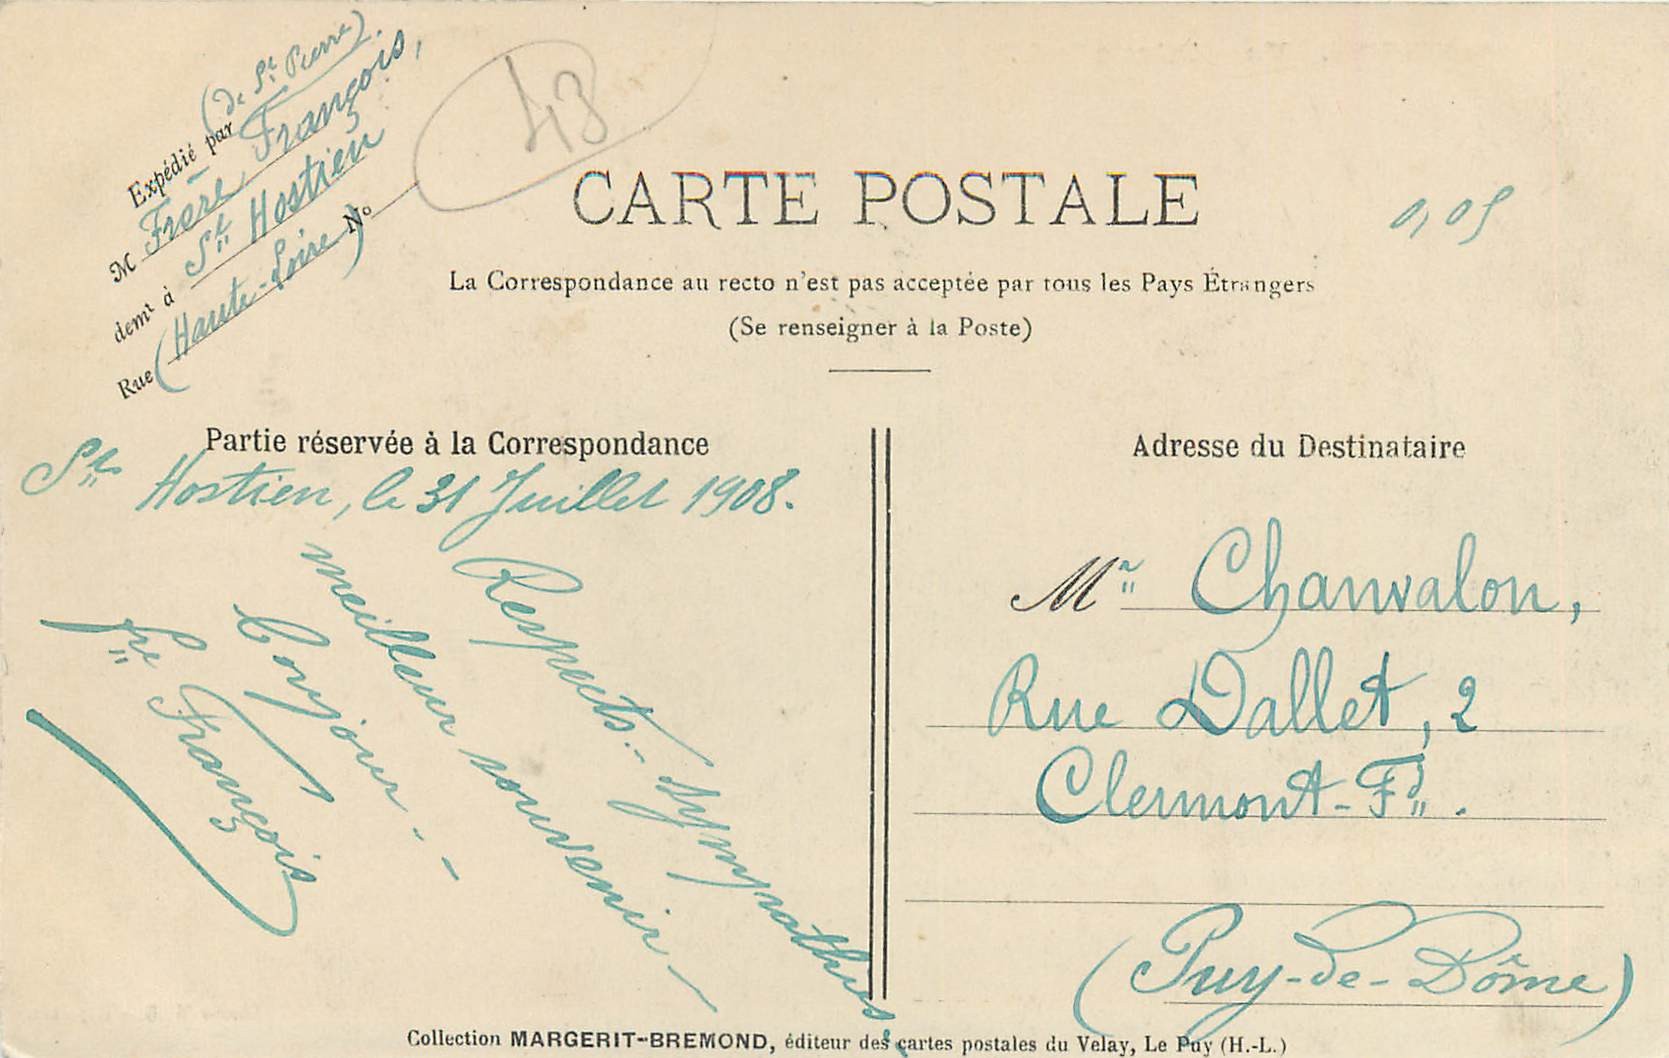 (de St Pierre).
Expédié par
M Frère François,
demt à St Hostien
Rue (Haute-Loire) No
43
CARTE POSTALE
0,05
La Correspondance au recto n'est pas acceptée par tous les Pays Étrangers
(Se renseigner à la Poste)
Partie réservée à la Correspondance
St Hostien, le 31 Juillet 1908.
Respects.- Sympathies
meilleur souvenir -
Bonjour - -
fre François
Adresse du Destinataire
Mr Chanvalon,
Rue Dallet, 2
Clermont-Fd.
(Puy-de-Dôme)
Collection MARGERIT-BREMOND, éditeur des cartes postales du Velay, Le Puy (H.-L.)